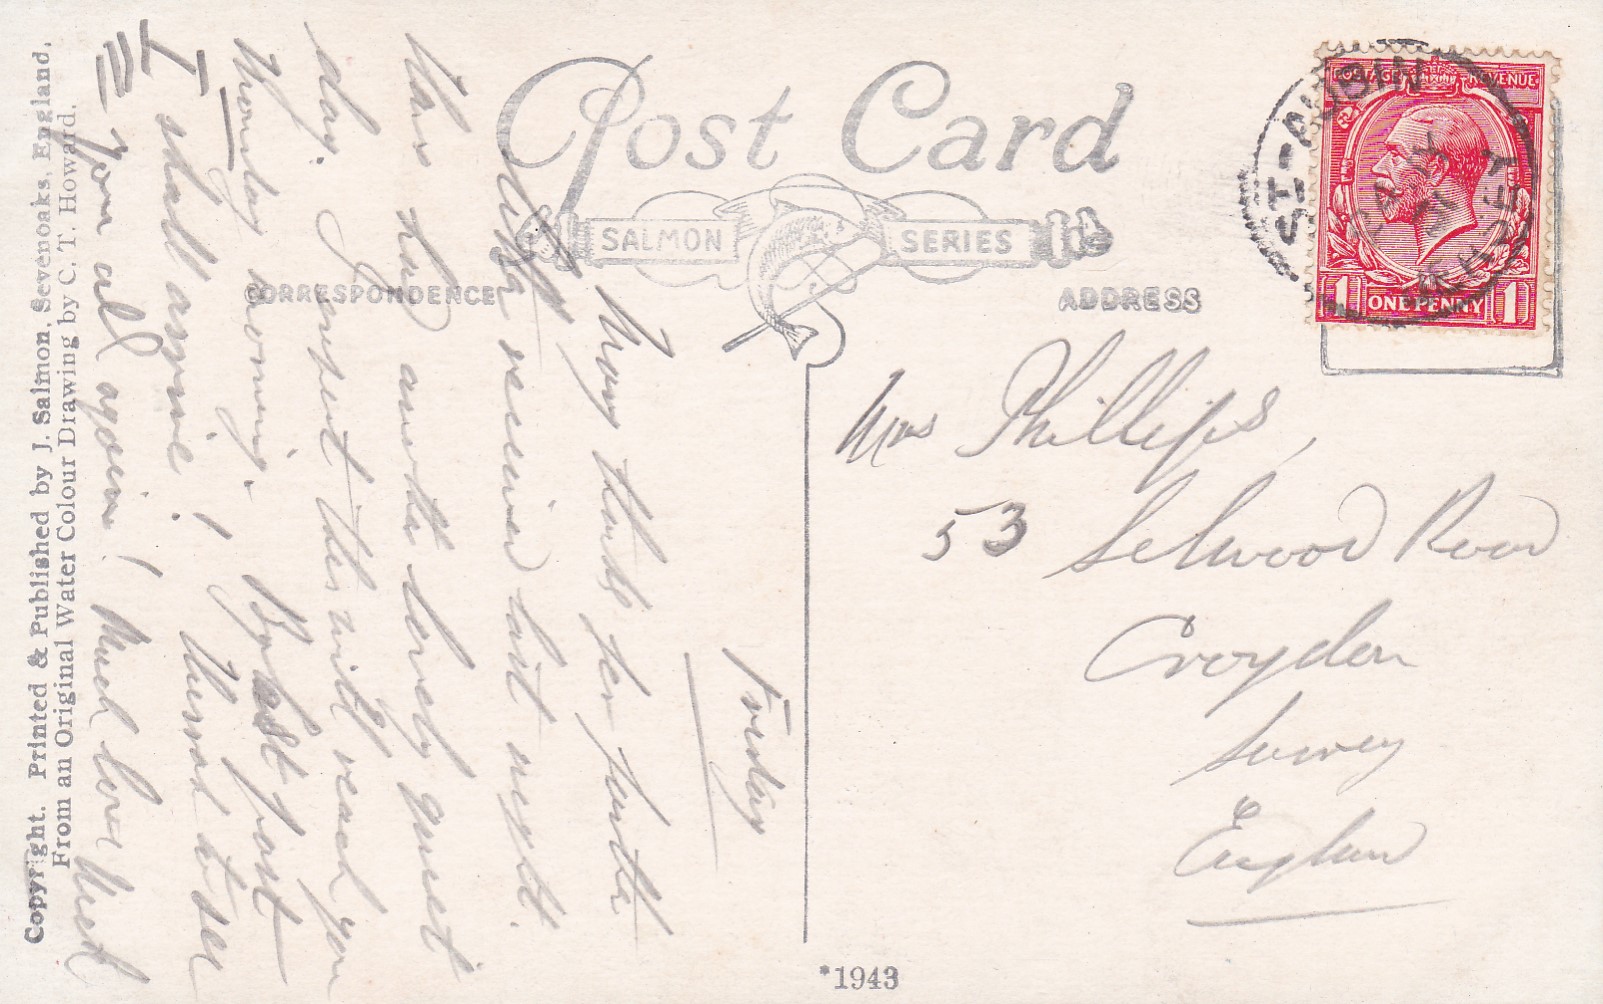 Post Card
SALMON SERIES
CORRESPONDENCE
ADDRESS
Friday
Many thanks for further
letter received last night.
Have had another lovely quiet
day. I expect this will reach you
Monday morning. By 1st post
I shall arrive! Thursd to see
you all again! Much love
Mrs Phillips,
53 Selwood Road
Croydon
Surrey
England
POSTAGE REVENUE
1 ONE PENNY 1
ST-AUBIN
JERSEY
Copyright. Printed & Published by J. Salmon, Sevenoaks, England,
From an Original Water Colour Drawing by C. T. Howard.
*1943